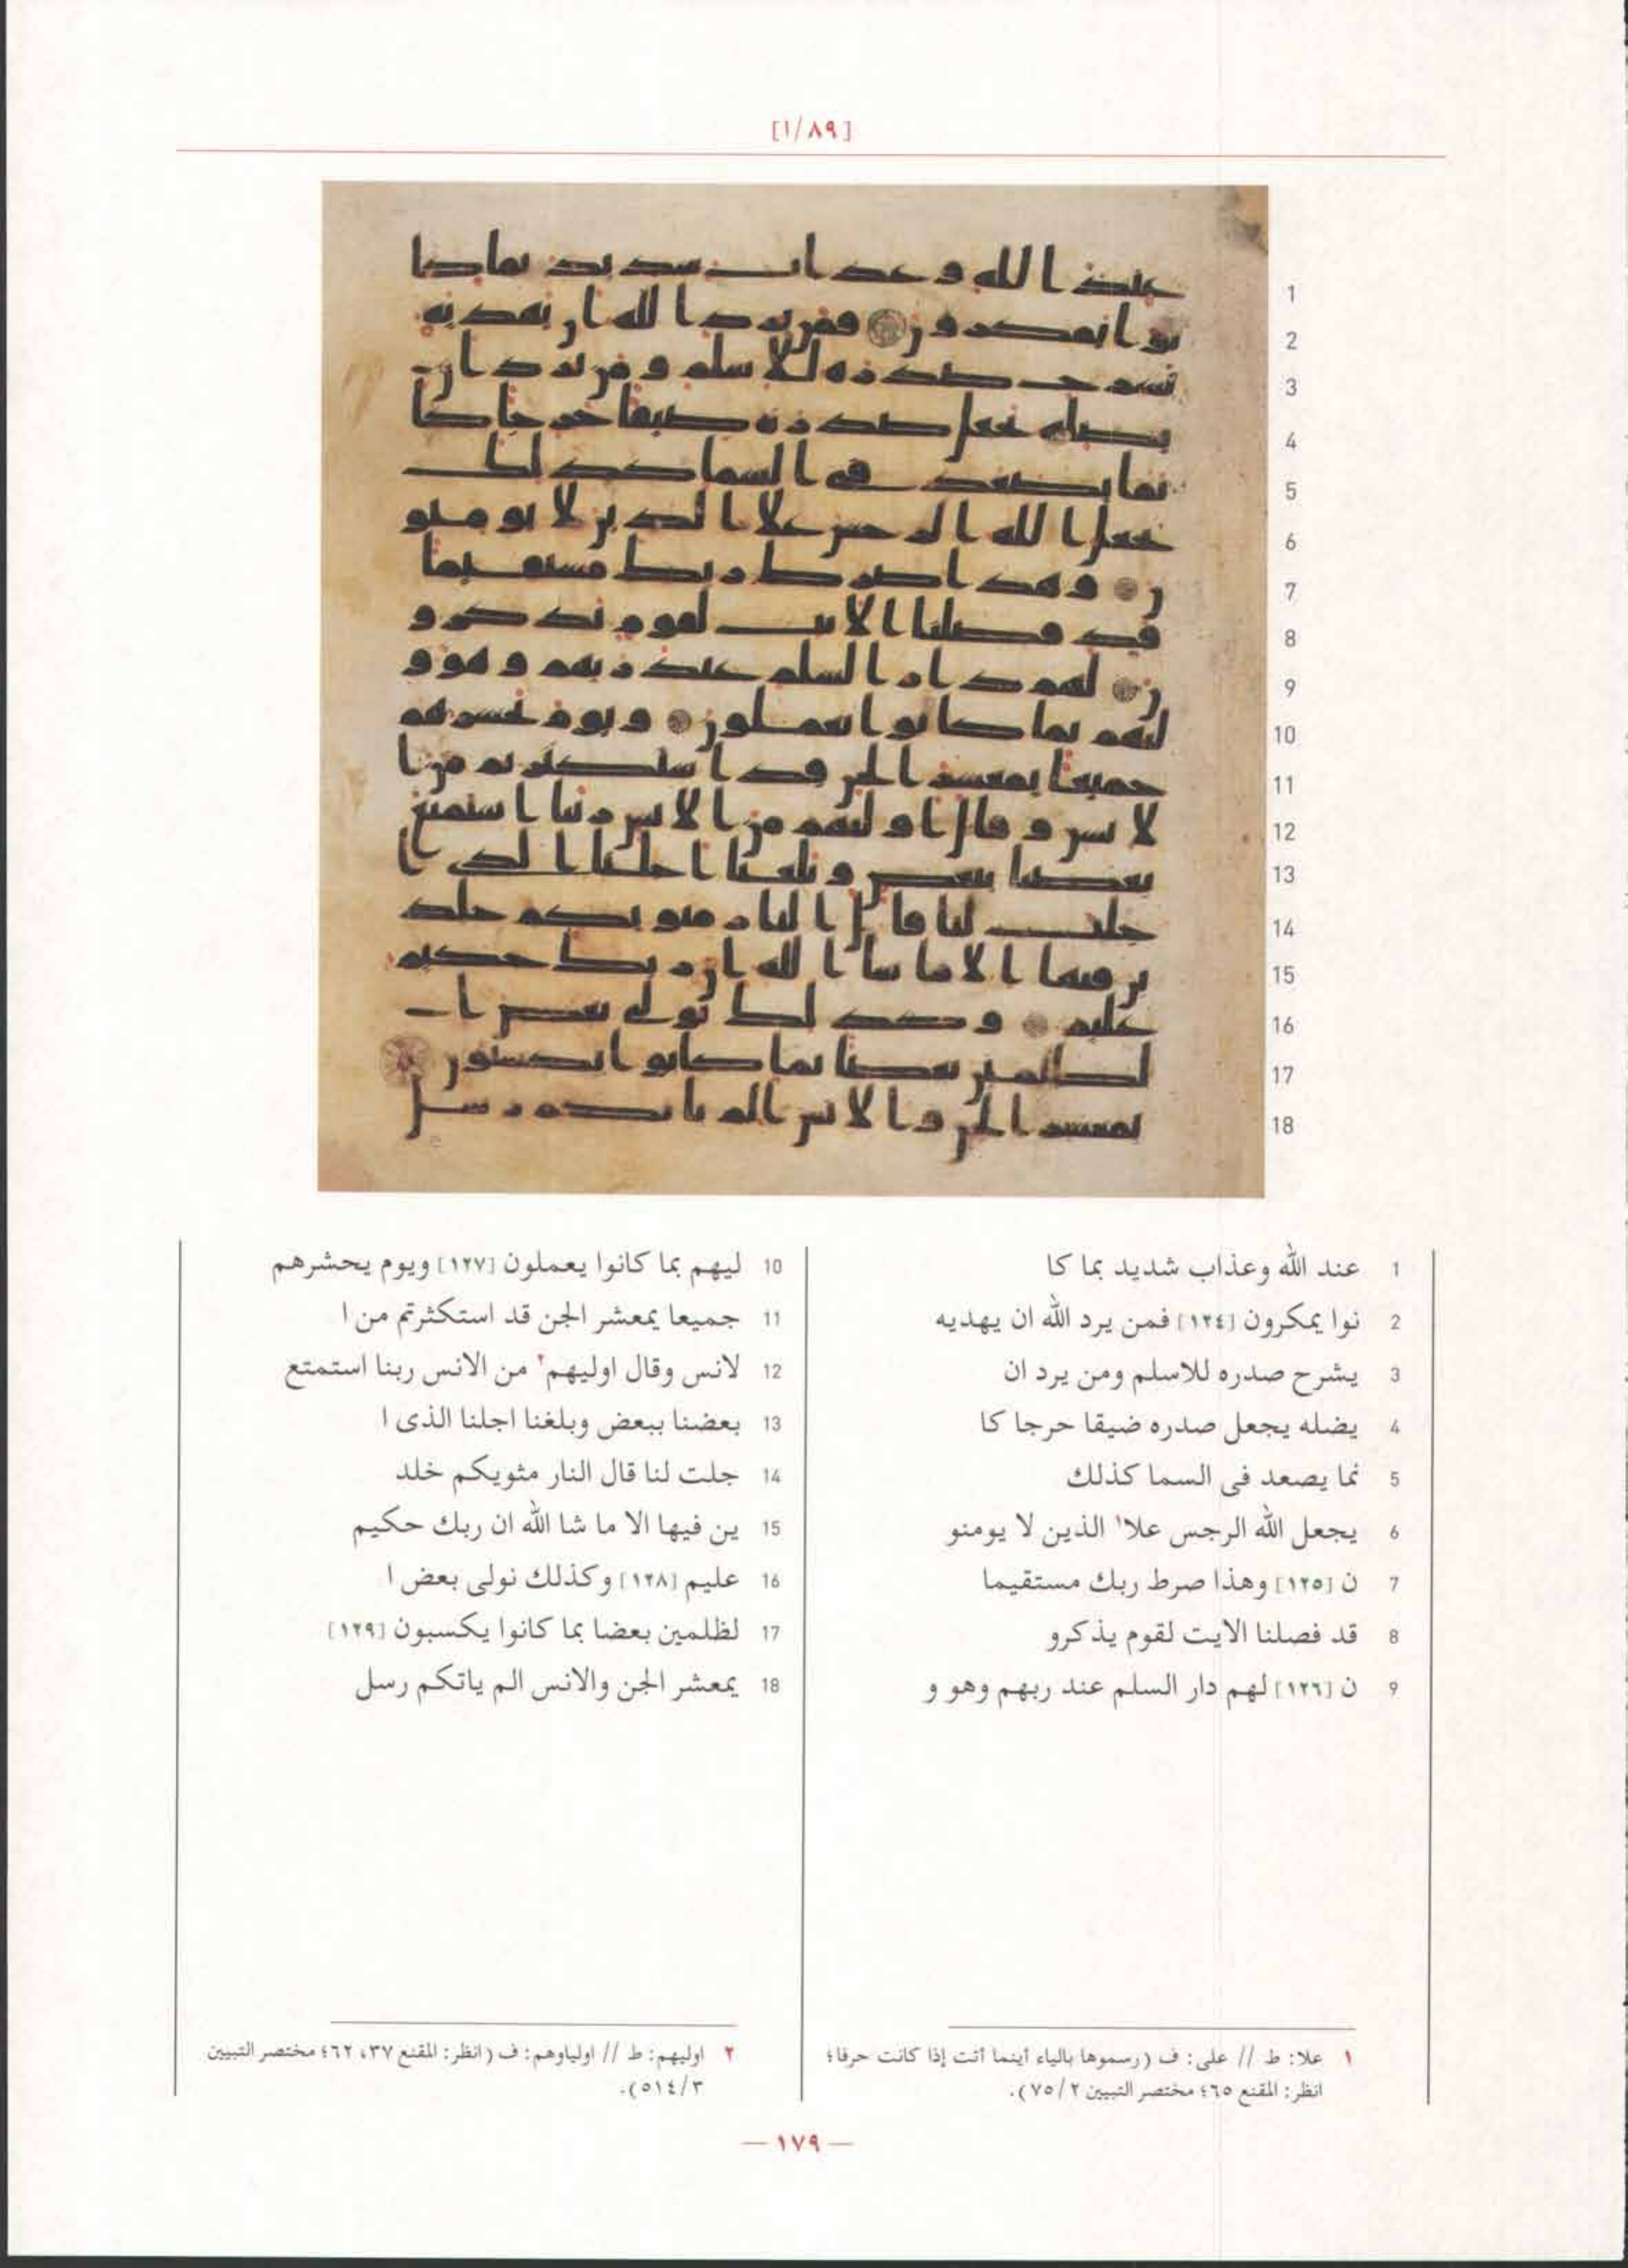 [١/٨٩]
1
2
3
4
5
6
7
8
9
10
11
12
13
14
15
16
17
18
1 عند الله وعذاب شديد بما كا
2 نوا يمكرون [١٢٤] فمن يرد الله ان يهديه
3 يشرح صدره للاسلم ومن يرد ان
4 يضله يجعل صدره ضيقا حرجا كا
5 نما يصعد فى السما كذلك
6 يجعل الله الرجس علا١ الذين لا يومنو
7 ن [١٢٥] وهذا صرط ربك مستقيما
8 قد فصلنا الايت لقوم يذكرو
9 ن [١٢٦] لهم دار السلم عند ربهم وهو و
10 ليهم بما كانوا يعملون [١٢٧] ويوم يحشرهم
11 جميعا يمعشر الجن قد استكثرتم من ا
12 لانس وقال اوليهم٢ من الانس ربنا استمتع
13 بعضنا ببعض وبلغنا اجلنا الذى ا
14 جلت لنا قال النار مثويكم خلد
15 ين فيها الا ما شا الله ان ربك حكيم
16 عليم [١٢٨] وكذلك نولى بعض ا
17 لظلمين بعضا بما كانوا يكسبون [١٢٩]
18 يمعشر الجن والانس الم ياتكم رسل
١ علا: ط // على: ف (رسموها بالياء أينما أتت إذا كانت حرفا؛
انظر: المقنع ٦٥؛ مختصر التبيين ٧٥/٢).
٢ اوليهم: ط // اولياوهم: ف (انظر: المقنع ٣٧، ٦٢؛ مختصر التبيين
٥١٤/٣).
— ١٧٩ —